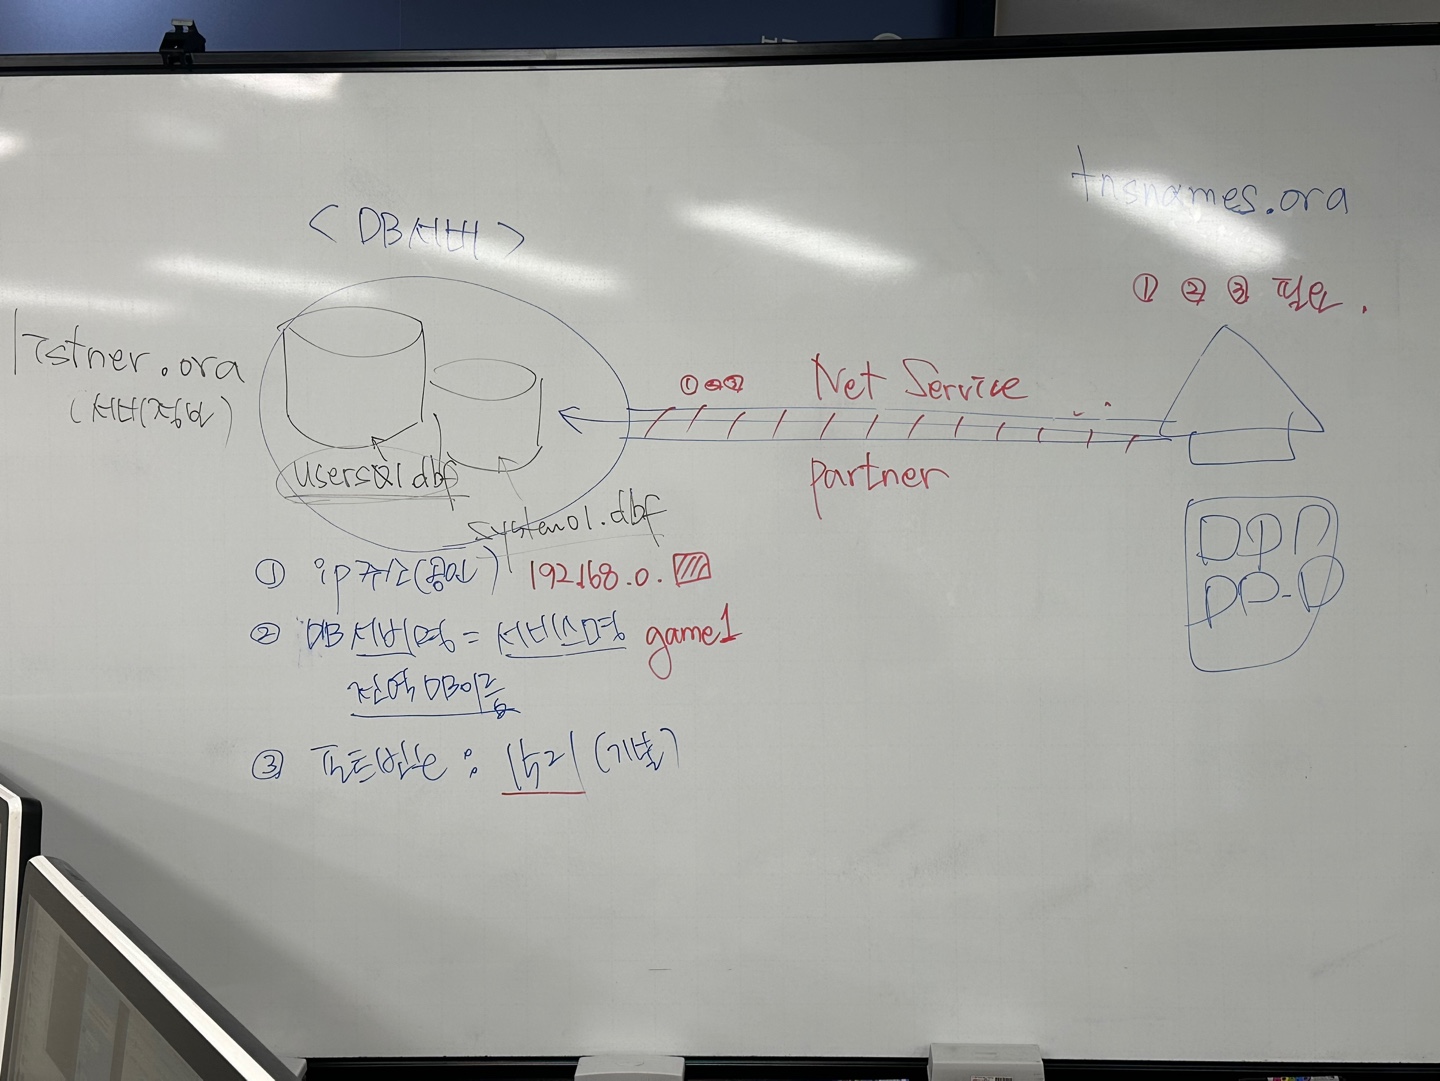 tnsnames.ora
< DB서버 >
① ② ③ 필요.
listner.ora
(서버정보)
①②③ Net Service
users01.dbf
partner
system01.dbf
① ip주소(공인) 192.168.0.
② DB서버명 = 서비스명 game1
전역DB이름
③ 포트번호 : 1521 (기본)